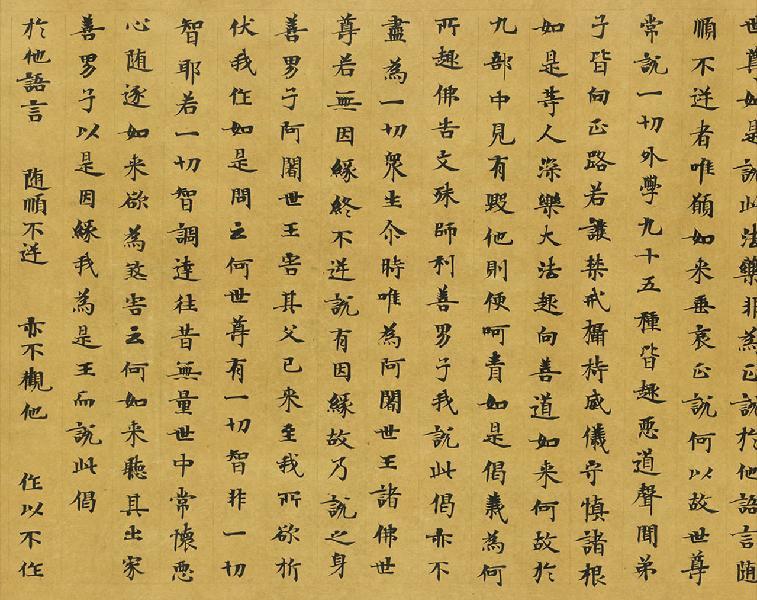 世尊如是說此法藥非為正說於他語言随
順不逆者唯願如来垂哀正說何以故世尊
常說一切外學九十五種皆趣惡道聲聞弟
子皆向正路若護禁戒攝持威儀守慎諸根
如是等人深樂大法趣向善道如来何故於
九部中見有毀他則便呵責如是偈義為何
所趣佛告文殊師利善男子我說此偈亦不
盡為一切眾生尒時唯為阿闍世王諸佛世
尊若無因緣終不逆說有因緣故乃說之身
善男子阿闍世王害其父已来至我所欲折
伏我作如是問云何世尊有一切智非一切
智耶若一切智調達往昔無量世中常懷惡
心随逐如来欲為煞害云何如来聽其出家
善男子以是因緣我為是王而說此偈
於他語言 随順不逆 亦不觀他 作以不作